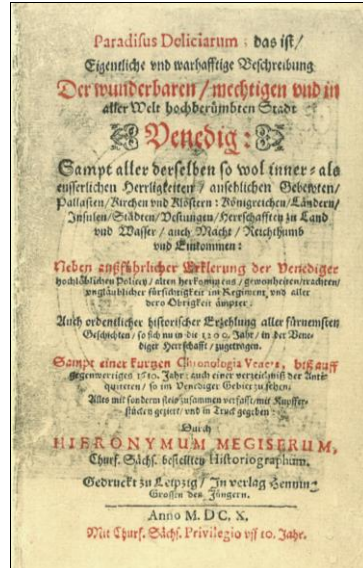 Paradisus Deliciarum: das ist/
Eigentliche vnd warhafftige Beschreibung
Der wunderbaren / mechtigen vnd in
aller Welt hochberümbten Stadt
Venedig:
Sampt aller derselben so wol inner- als
eusserlichen Herrligkeiten / ansehlichen Gebewten/
Pallästen / Kirchen vnd Klöstern: Königreichen / Ländern/
Insulen / Städten / Vestungen / Herrschafften zu Land
vnd Wasser / auch Macht / Reichthumb
vnd Einkommen:
Neben außführlicher Erklerung der Venediger
hochlöblichen Policey / alten herkommens / gewonheiten / trachten/
vnglaublicher fürsichtigkeit im Regiment, vnd aller
dero Obrigkeit ämpter.
Auch ordentlicher historischer Erzehlung aller fürnemsten
Geschichten / so sich nu in die 1200. Jahr / in der Vene-
diger Herrschafft / zugetragen.
Sampt einer kurtzen Chronologia Veneta, biß auff
gegenwertiges 1610. Jahr: auch einer verzeichniß der Anti-
quiteten / so im Venediger Gebiet zu sehen.
Alles mit sonderm fleis zusammen verfasst / mit Kupffer-
stücken gezieret / vnd in Truck gegeben:
Durch
HIERONYMUM MEGISERUM,
Churf. Sächs. bestellten Historiographum.
Gedruckt zu Leipzig / In verlag Henning
Grossen des Jüngern.
Anno M. DC. X.
Mit Churf. Sächs. Privilegio vff 10. Jahr.